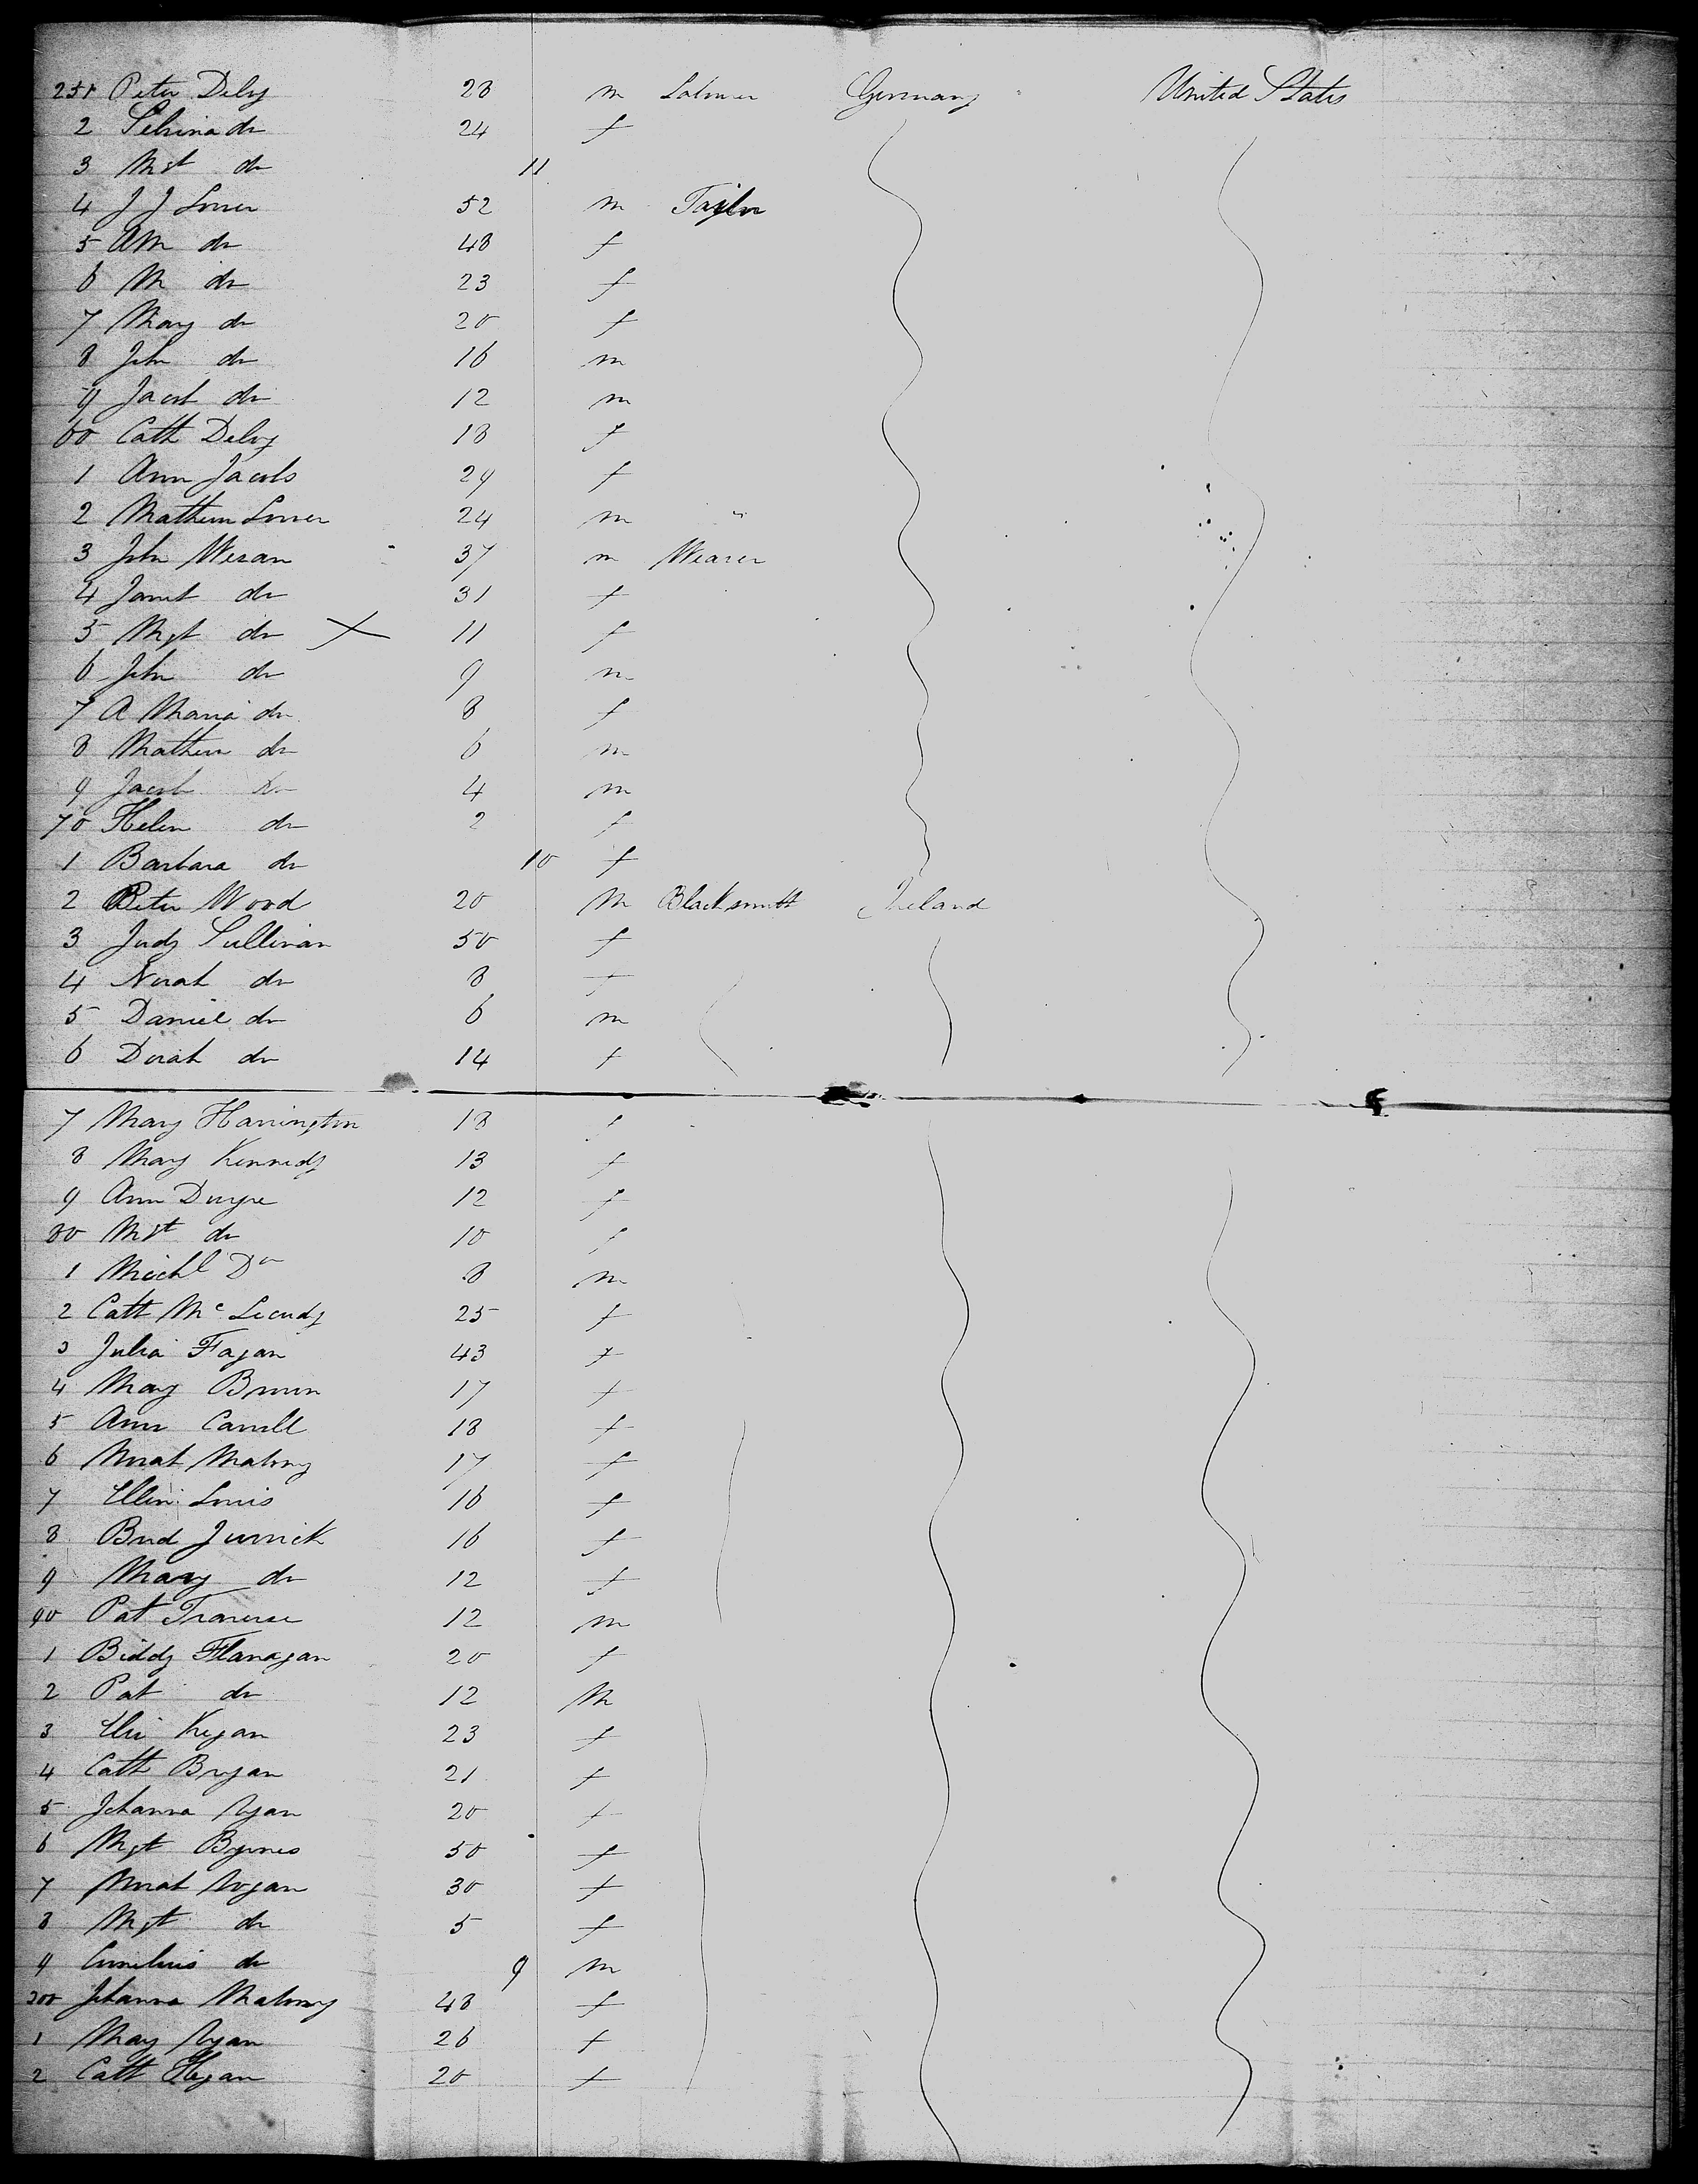 251 Peter Delvy 28 m Labourer Germany United States
2 do 24 f
3 Mgt do 11
4 J J Lorrer 52 m Taylor
5 AM do 48 f
6 M do 23 f
7 Mary do 20 f
8 John do 16 m
9 Jacob do 12 m
60 Cath Delvy 18 f
1 Ann Jacobs 29 f
2 Mathew Lorrer 24 m "
3 John Weran 37 m Weaver
4 Janet do 31 f
5 Mgt do X 11 f
6 John do 9 m
7 A Maria do 8 f
8 Mathew do 6 m
9 Jacob do 4 m
70 Helen do 2 f
1 Barbara do 10 f
2 Peter Wood 20 M Blacksmith Ireland
3 Judy Sullivan 50 f
4 Norah do 8 f
5 Daniel do 6 m
6 Dorah do 14 f
7 Mary Harrington 18 f
8 Mary Kennedy 13 f
9 Ann Dwyre 12 f
80 Mgt do 10 f
1 Michl Do 8 m
2 Cath Mc 25 f
3 Julia Fagan 43 f
4 Mary Brown 17 f
5 Ann Carroll 18 f
6 Norah Malony 17 f
7 Ellen Louis 16 f
8 Brid 16 f
9 Mary do 12 f
90 Pat Traverse 12 m
1 Biddy Flanagan 20 f
2 Pat do 12 M
3 Eliz Kegan 23 f
4 Cath Bryan 21 f
5 Johanna Ryan 20 f
6 Mgt Byrnes 50 f
7 Norah Hogan 30 f
8 Mgt do 5 f
9 Cornelius do 9 m
300 Johanna Malony 48 f
1 Mary Ryan 26 f
2 Cath Hegan 20 f